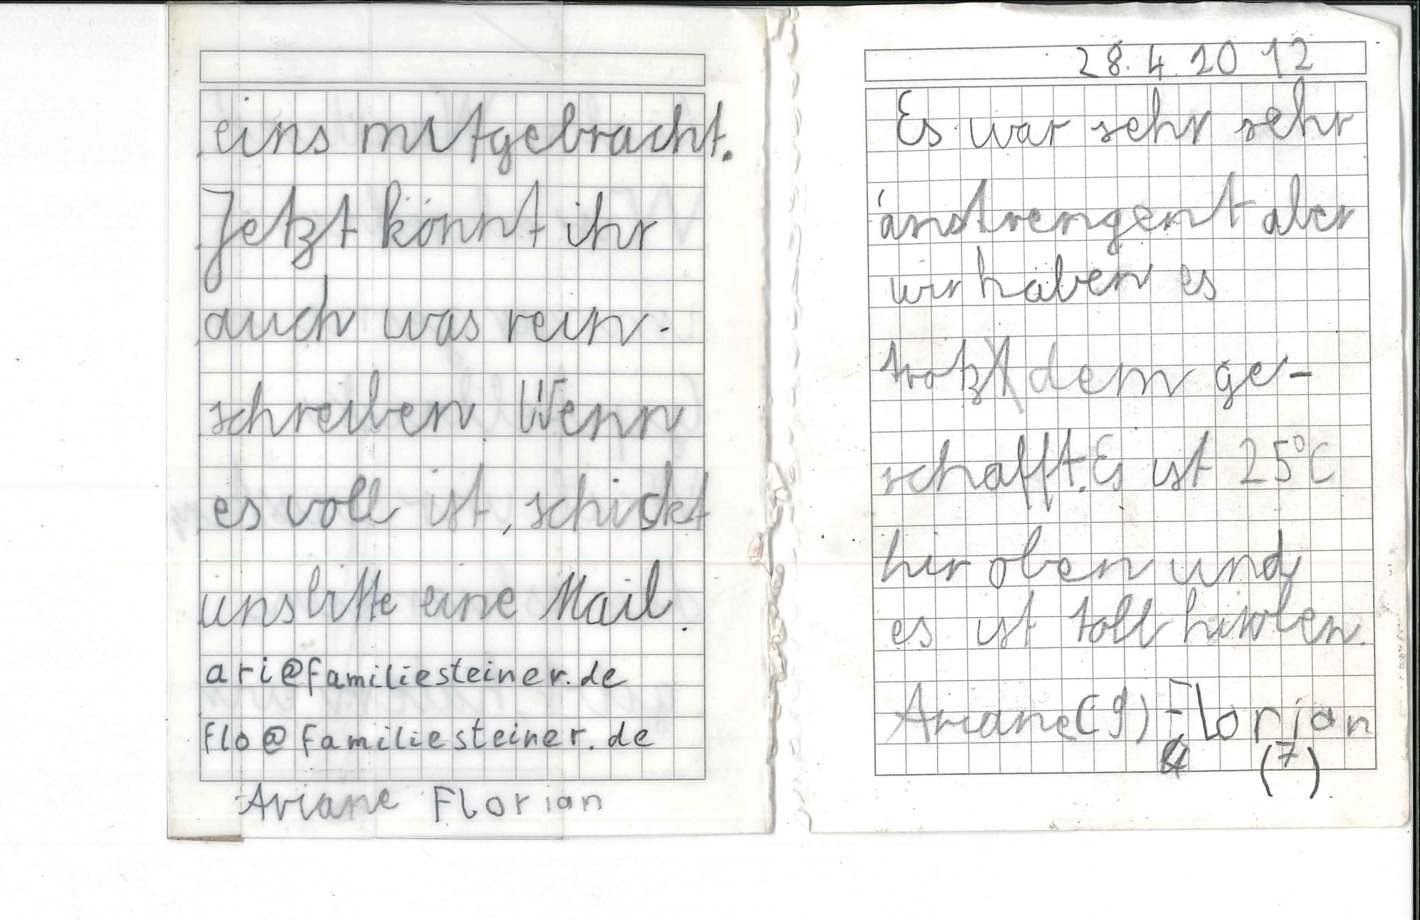 eins mitgebracht.
Jetzt könnt ihr
auch was rein-
schreiben. Wenn
es voll ist, schickt
uns bitte eine Mail.
ari@familiesteiner.de
flo@familiesteiner.de
Ariane Florian
28.4.2012
Es war sehr sehr
anstrengent aber
wir haben es
trotzdem ge-
schafft. Es ist 25°C
hir oben und
es ist toll hir oben.
Ariane (9) Florian
(7)